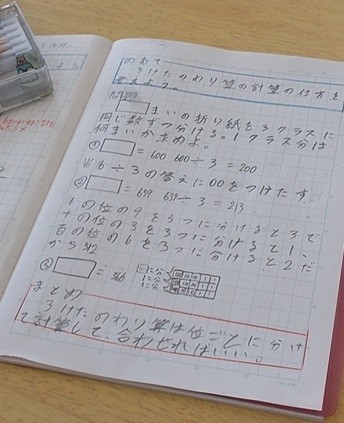 めあて
3けたのわり算の計算の仕方を
考えよう。
問題
□まいの折り紙を3クラスに
同じ数ずつ分ける。1クラス分は
何まいか求めよ。
① □ = 600 600÷3=200
6÷3の答えに00をつけたす。
② □ = 639 639÷3=213
1の位の9を3つに分けると3で
十の位の3を3つに分けると1、
百の位の6を3つに分けると2だ
から
③ □ = 366
まとめ
3けたのわり算は位ごとに分け
て計算して、合わせればいい。